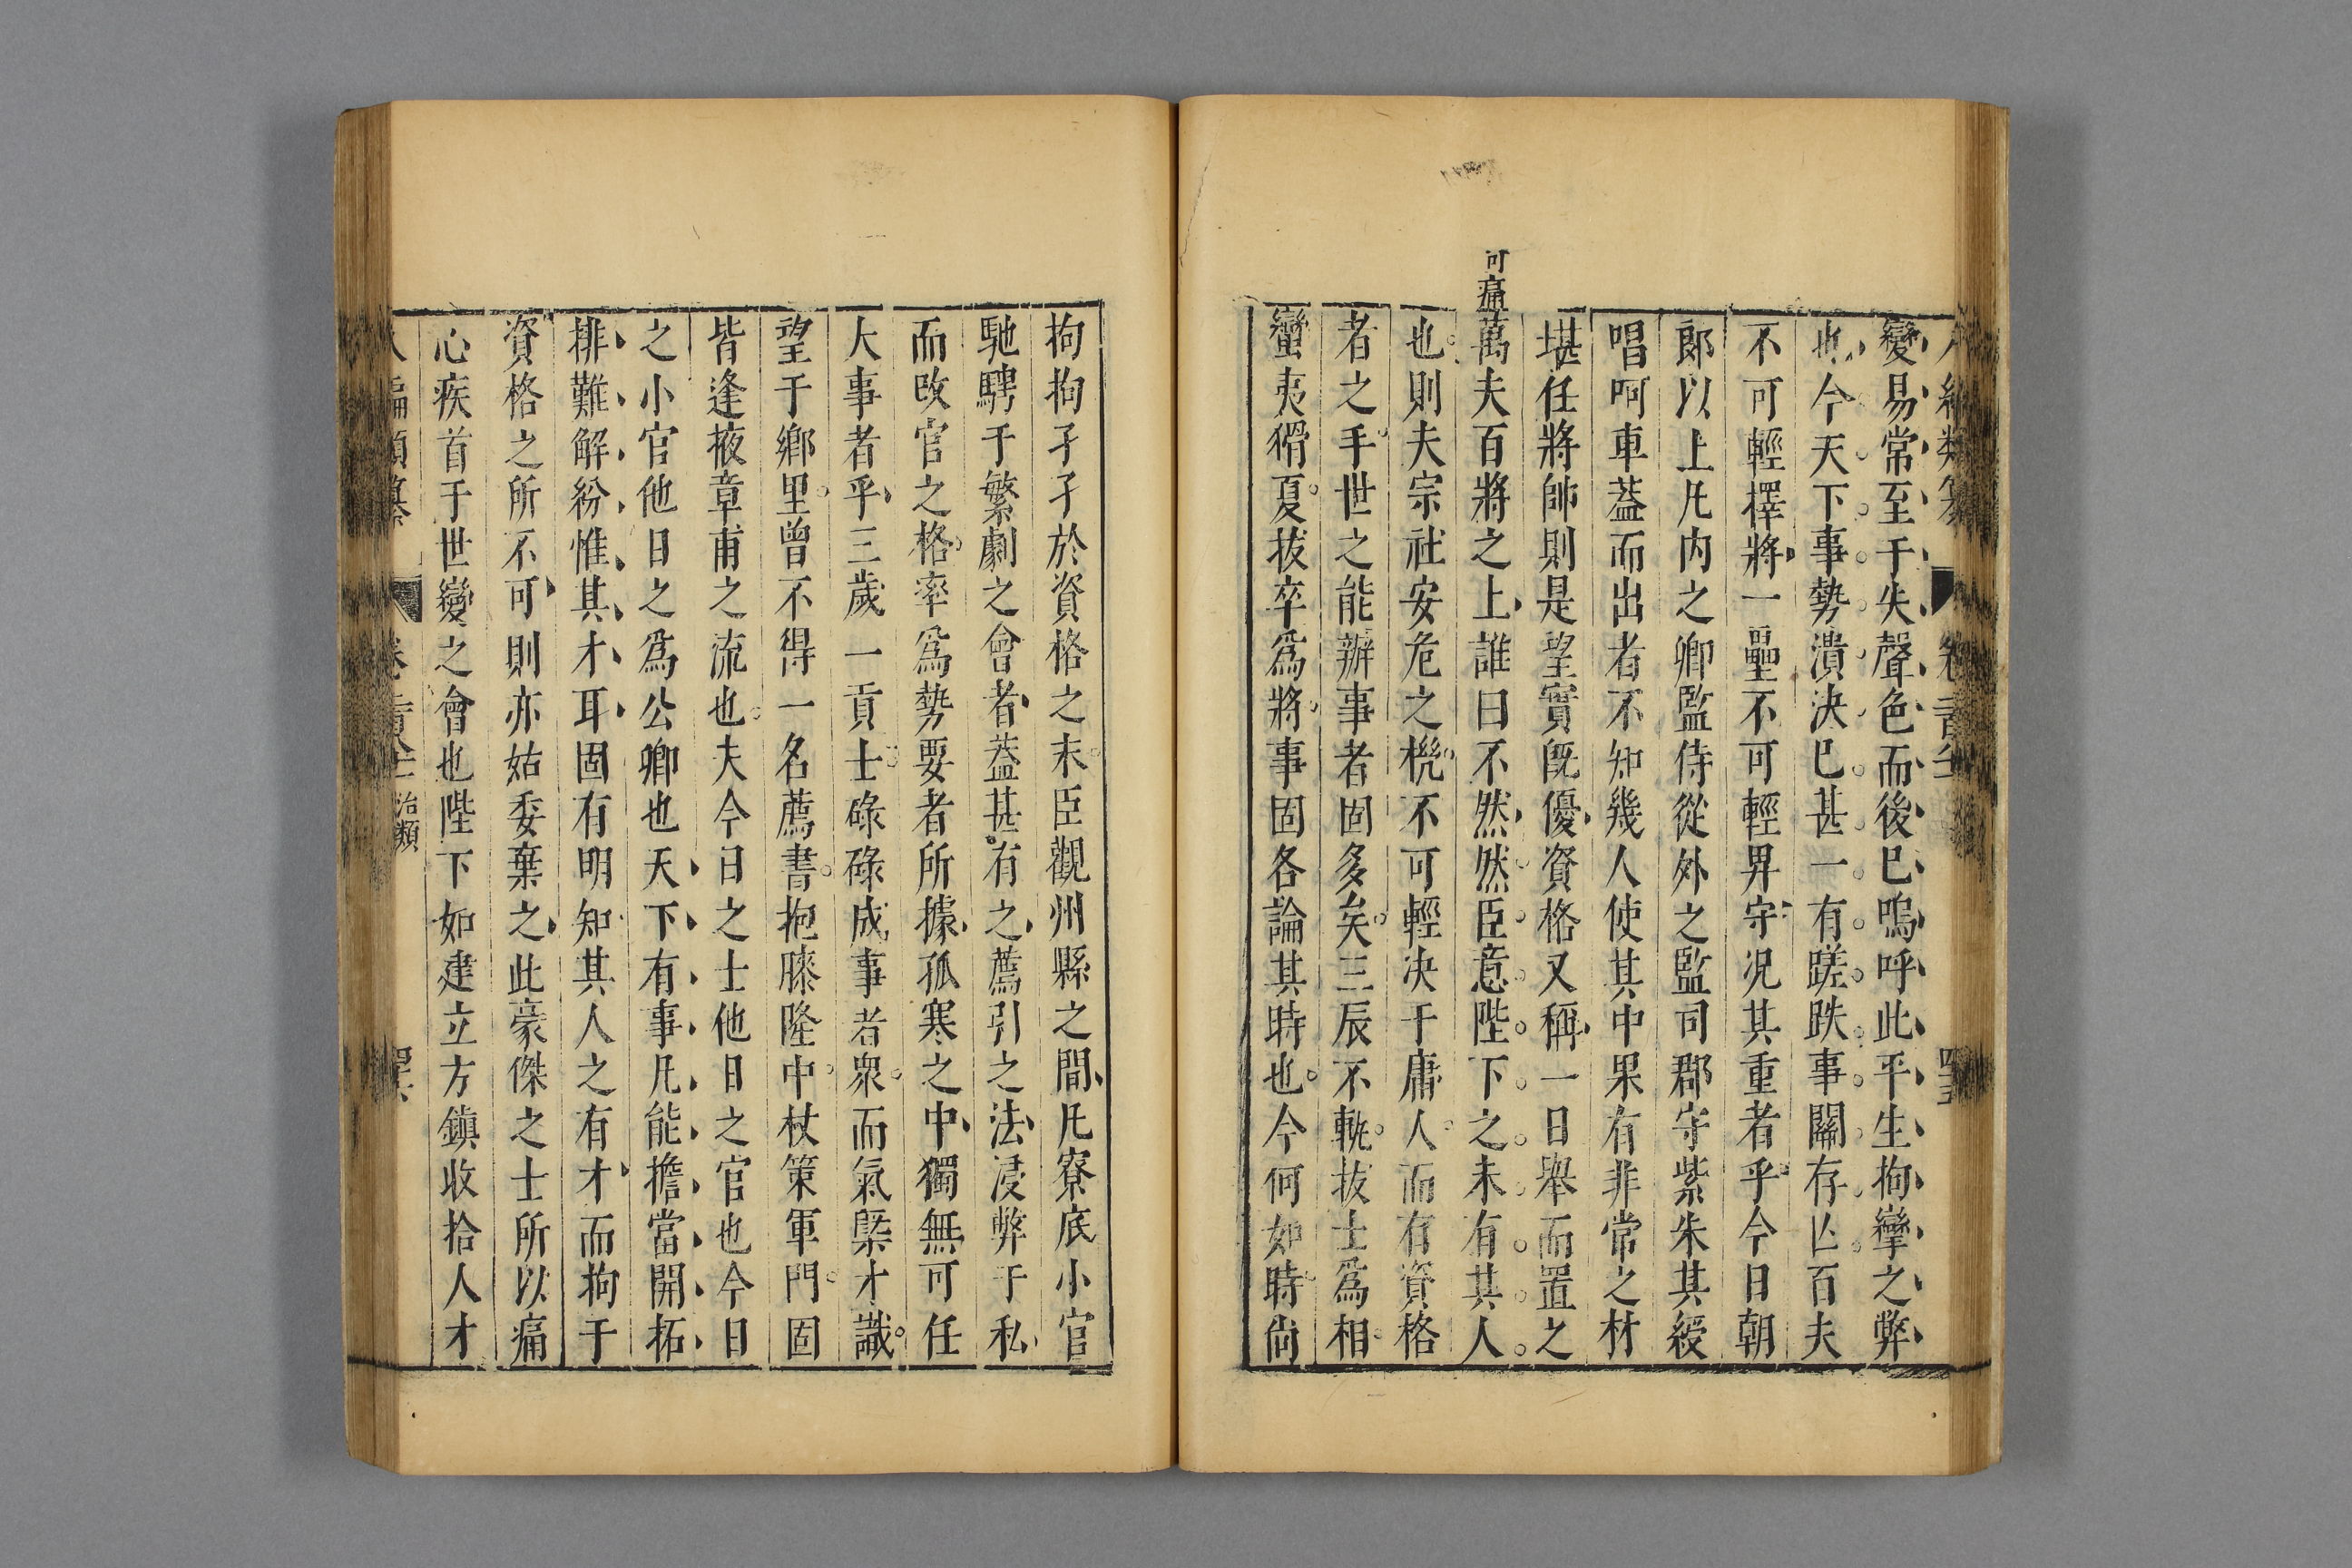 變易常至于失聲色而後已嗚呼此平生拘攣之弊
也今天下事勢潰決已甚一有蹉跌事關存亾百夫
不可輕擇將一壘不可輕畀守况其重者乎今日朝
郎以上凡内之卿監侍從外之監司郡守紫朱其綬
唱呵車葢而出者不知幾人使其中果有非常之材
堪任將帥則是望實旣優資格又稱一日舉而置之
可痛
萬夫百將之上誰曰不然然臣意陛下之未有其人
也則夫宗社安危之機不可輕决于庸人而有資格
者之手世之能辦事者固多矣三辰不軌拔士爲相
蠻夷猾夏拔卒爲將事固各論其時也今何如時尚
拘拘孑孑於資格之末臣觀州縣之間凡寮底小官
馳騁于繁劇之會者葢甚有之薦引之法浸弊于私
而改官之格率爲勢要者所據孤寒之中獨無可任
大事者乎三歲一貢士碌碌成事者衆而氣槩才識
望于鄉里曾不得一名薦書抱膝隆中杖策軍門固
皆逢掖章甫之流也夫今日之士他日之官也今日
之小官他日之爲公卿也天下有事凡能擔當開拓
排難解紛惟其才耳固有明知其人之有才而拘于
資格之所不可則亦姑委棄之此豪傑之士所以痛
心疾首于世變之會也陛下如建立方鎮收拾人才
治類